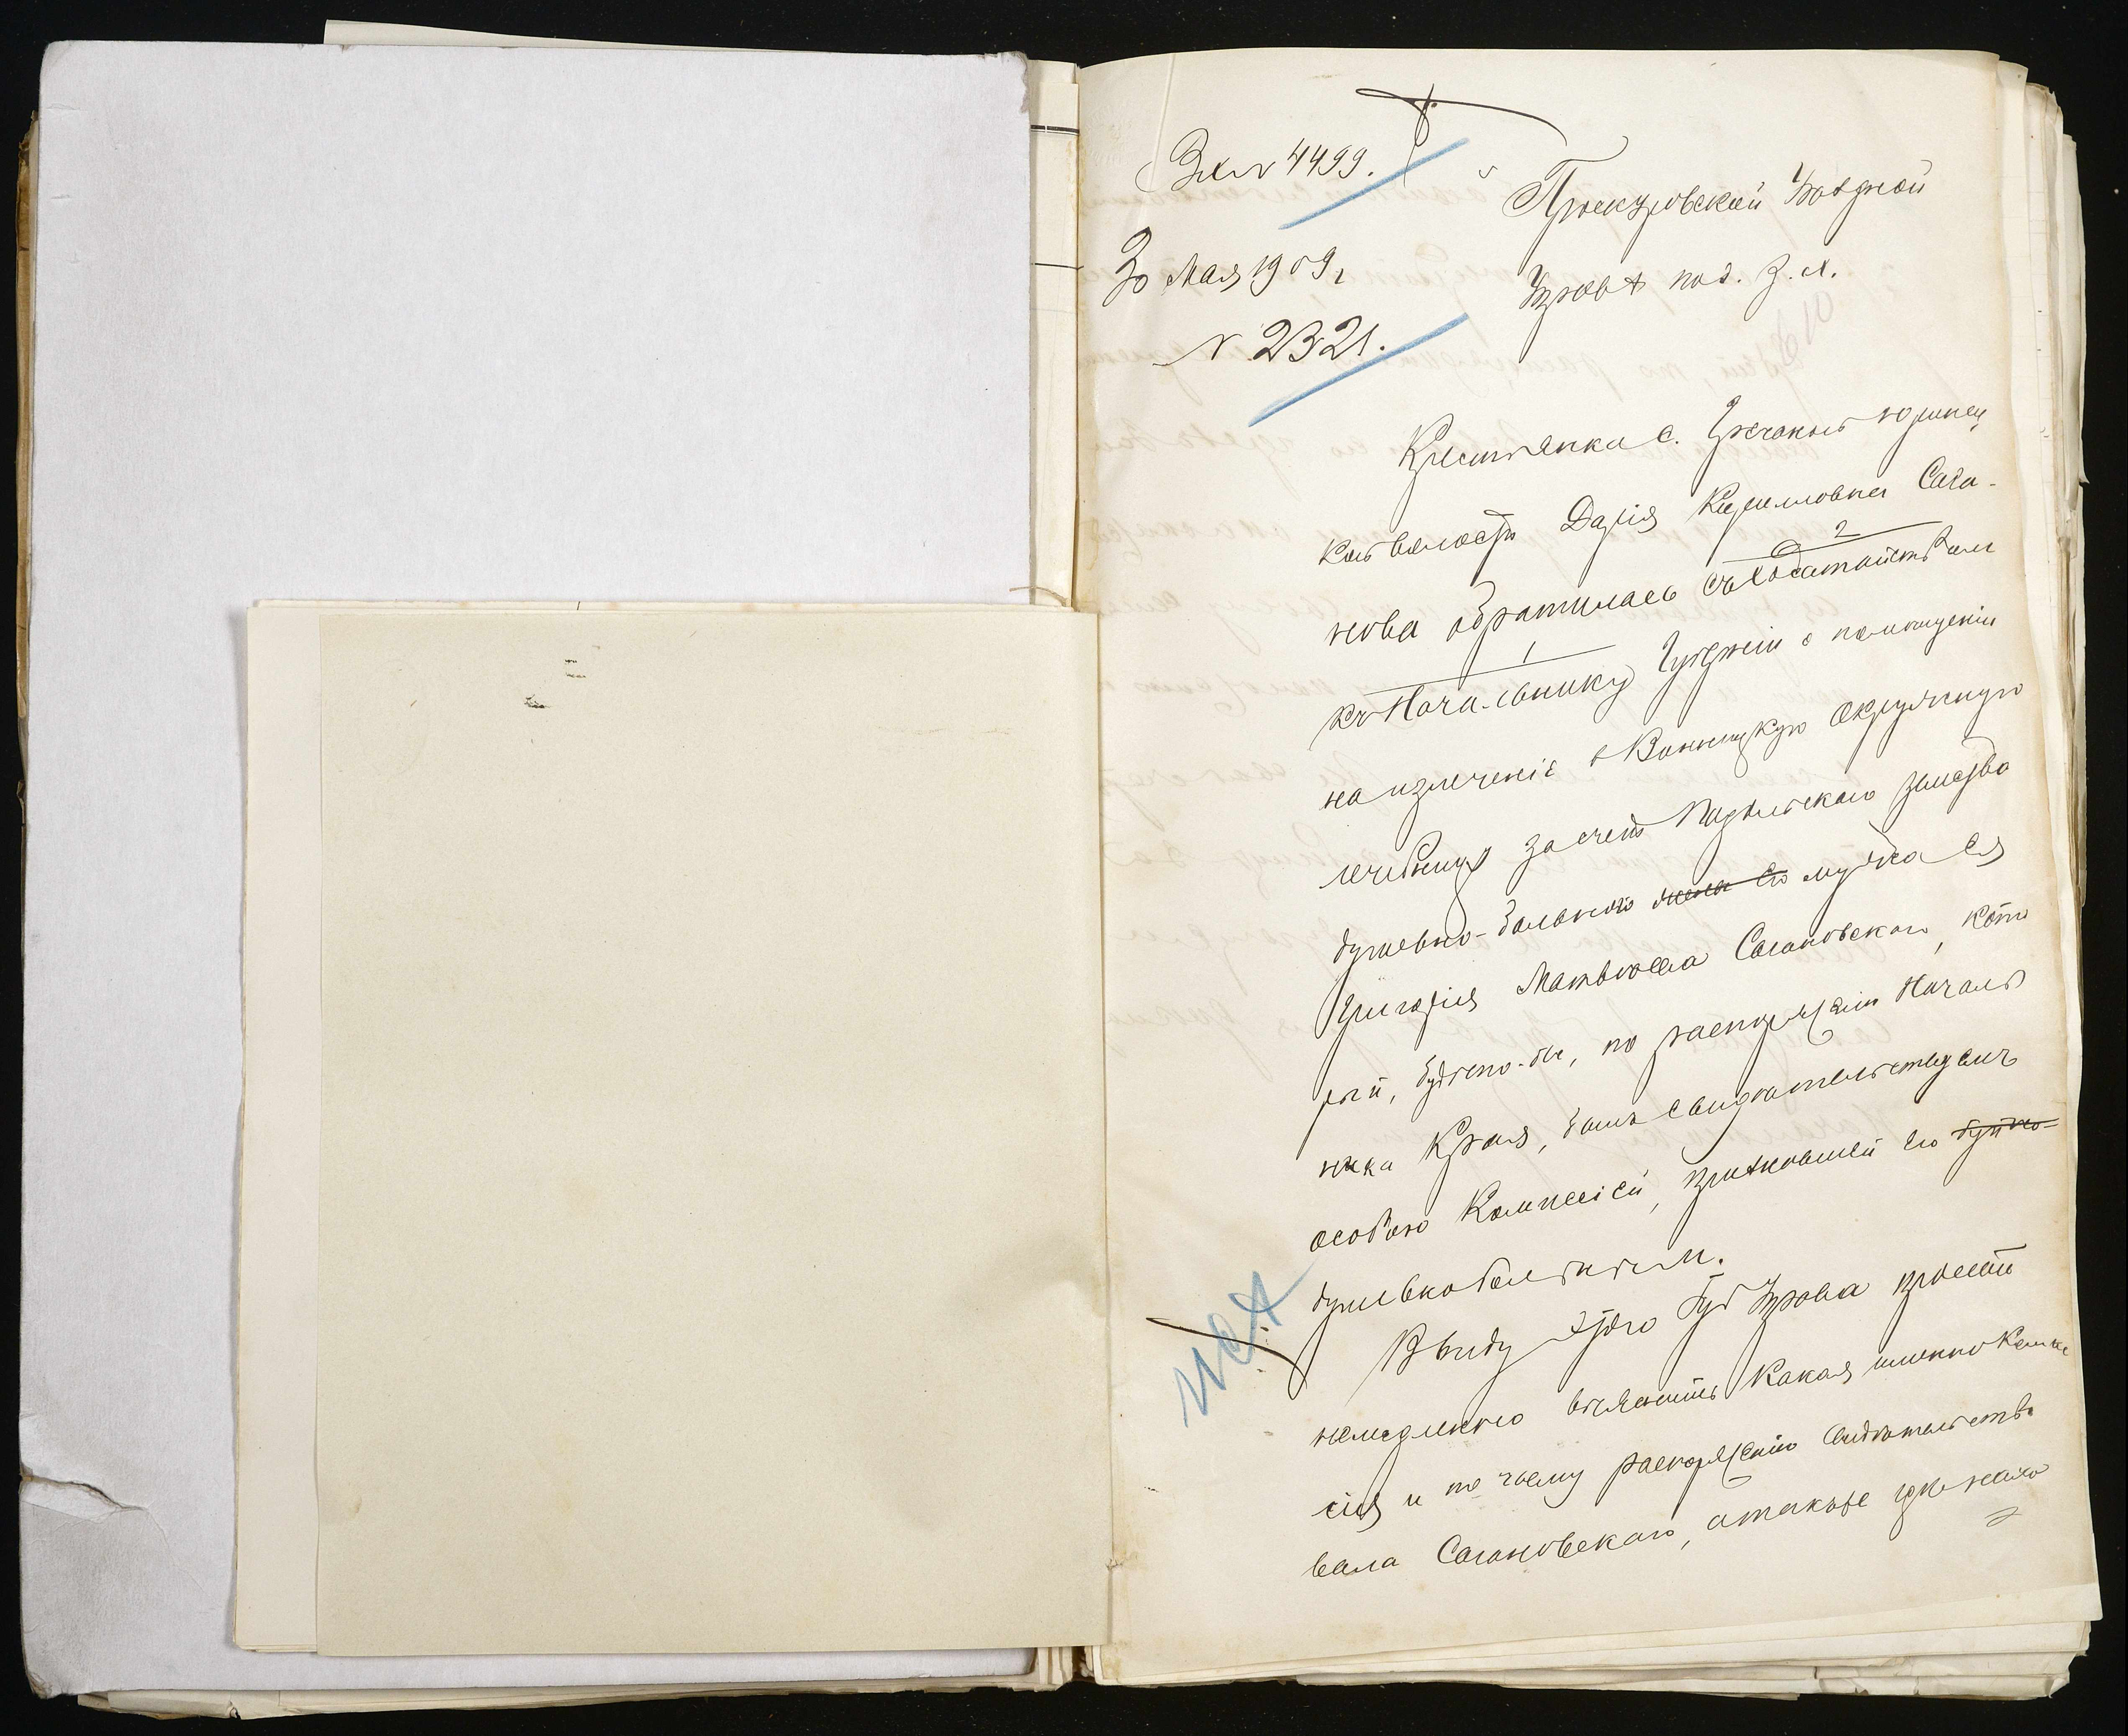 Вх № 4499.
30 Мая 1909 г
№ 2321.
Проскуровской Уѣздной
Управѣ под. з. х.
610
Крестьянка с. Гречаны Юринец
кой волости Дарія Кирилловна Сага-
2
нова обратилась съ ходатайствомъ
1
къ Начальнику Губерніи о помѣщеніи
на излеченіе в Винницкую Окружную
лечебницу за счетъ Подольскаго земства
душевно-больного жены его мужа ея
Григорія Матвѣева Сагановскаго, кото
рый, будто-бы, по распоряженію Началь
ника Края, былъ свидѣтельствуемъ
особою Комиссіей, признавшей его будто-
душевнобольнымъ.
Ввиду этого Губ Управа проситъ
немедленно выяснить какая именно комис
сія и по чьему распоряженію свидѣтельство
вала Сагановскаго, а также гдѣ нахо
исх